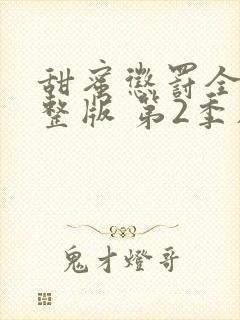 甜蜜懲罰全
整版 第2季
鬼才燈哥